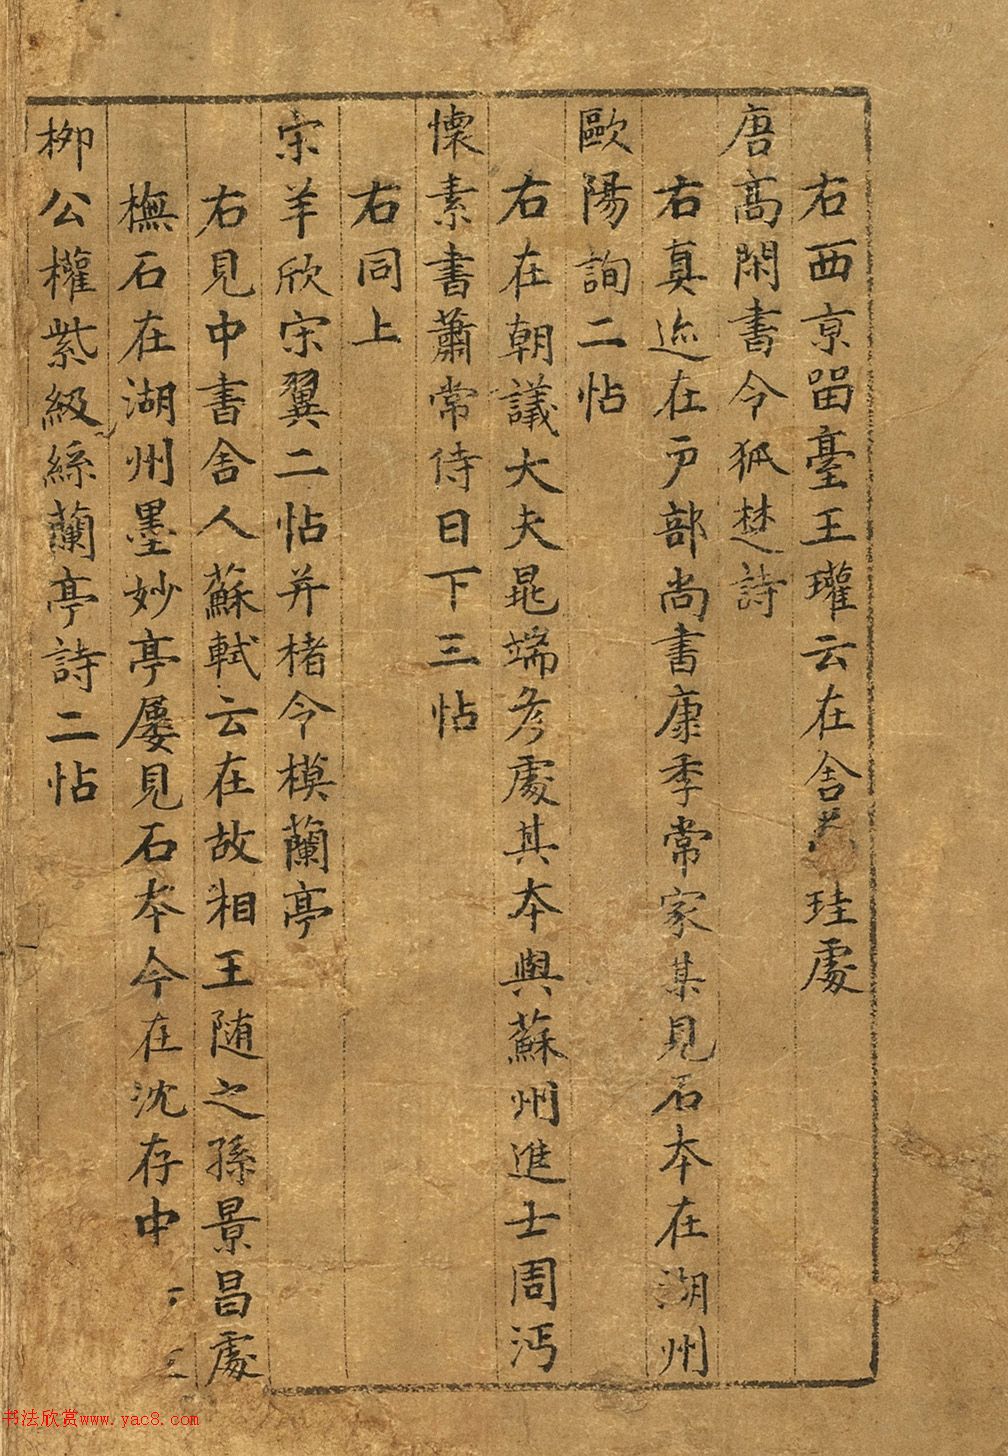 右西京留臺王瓘云在舍珪處
唐高閑書令狐楚詩
右真迹在戶部尚書康季常家某見石本在湖州
歐陽詢二帖
右在朝議大夫晁端彥處其本與蘇州進士周沔
懷素書蕭常侍日下三帖
右同上
宋羊欣宋翼二帖并楮令模蘭亭
右見中書舍人蘇軾云在故相王随之孫景昌處
橅石在湖州墨妙亭屢見石本今在沈存中
柳公權紫絲蘭亭詩二帖
书法欣赏www.yac8.com